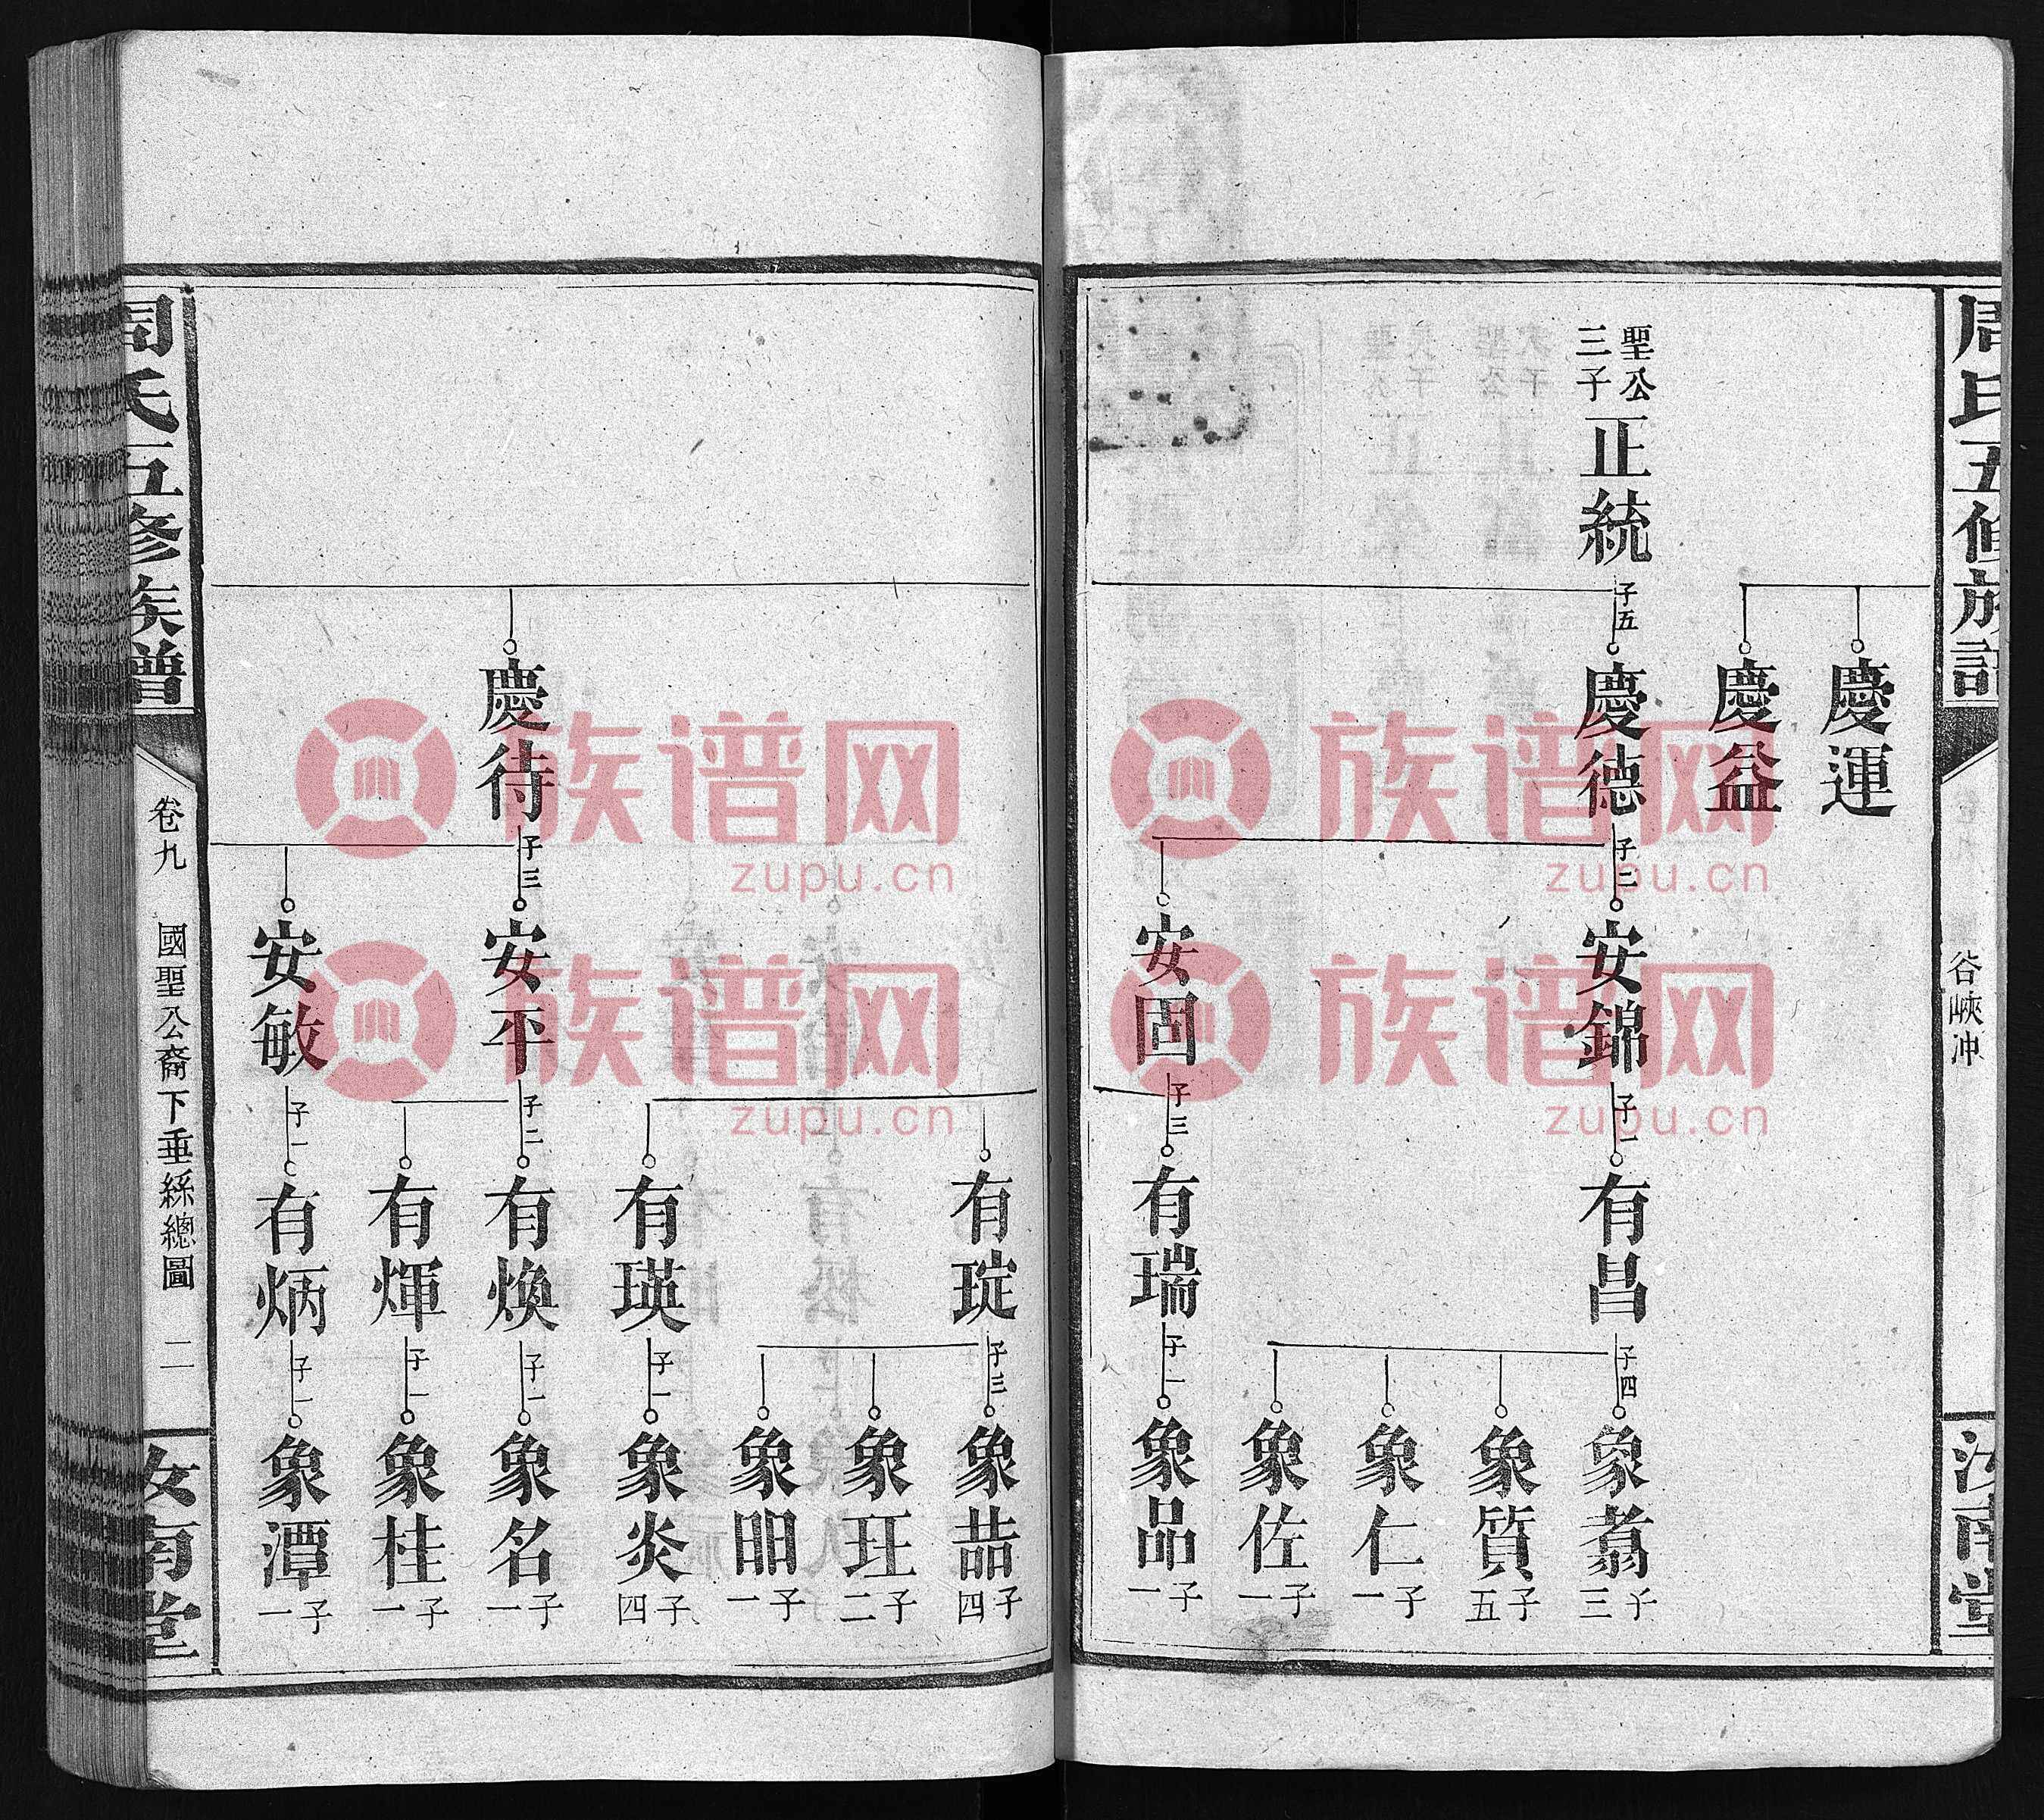 周氏五修族譜
谷峽冲
汝南堂
慶運
慶益
聖公
三子
正統
子五
慶德
子二
安錦
子一
有昌
子四
象翥
子三
象質
子五
象仁
子一
象佐
子一
安固
子三
有瑞
子一
象品
子一
有琔
子三
象喆
子四
象玨
子二
象明
子一
有瑛
子一
象炎
子四
慶待
子三
安平
子二
有煥
子一
象名
子一
有煇
子一
象桂
子一
安敏
子一
有炳
子一
象潭
子一
周氏五修族譜
卷九
國聖公裔下垂絲總圖
二
汝南堂
族谱网
zupu.cn
族谱网
zupu.cn
族谱网
zupu.cn
族谱网
zupu.cn